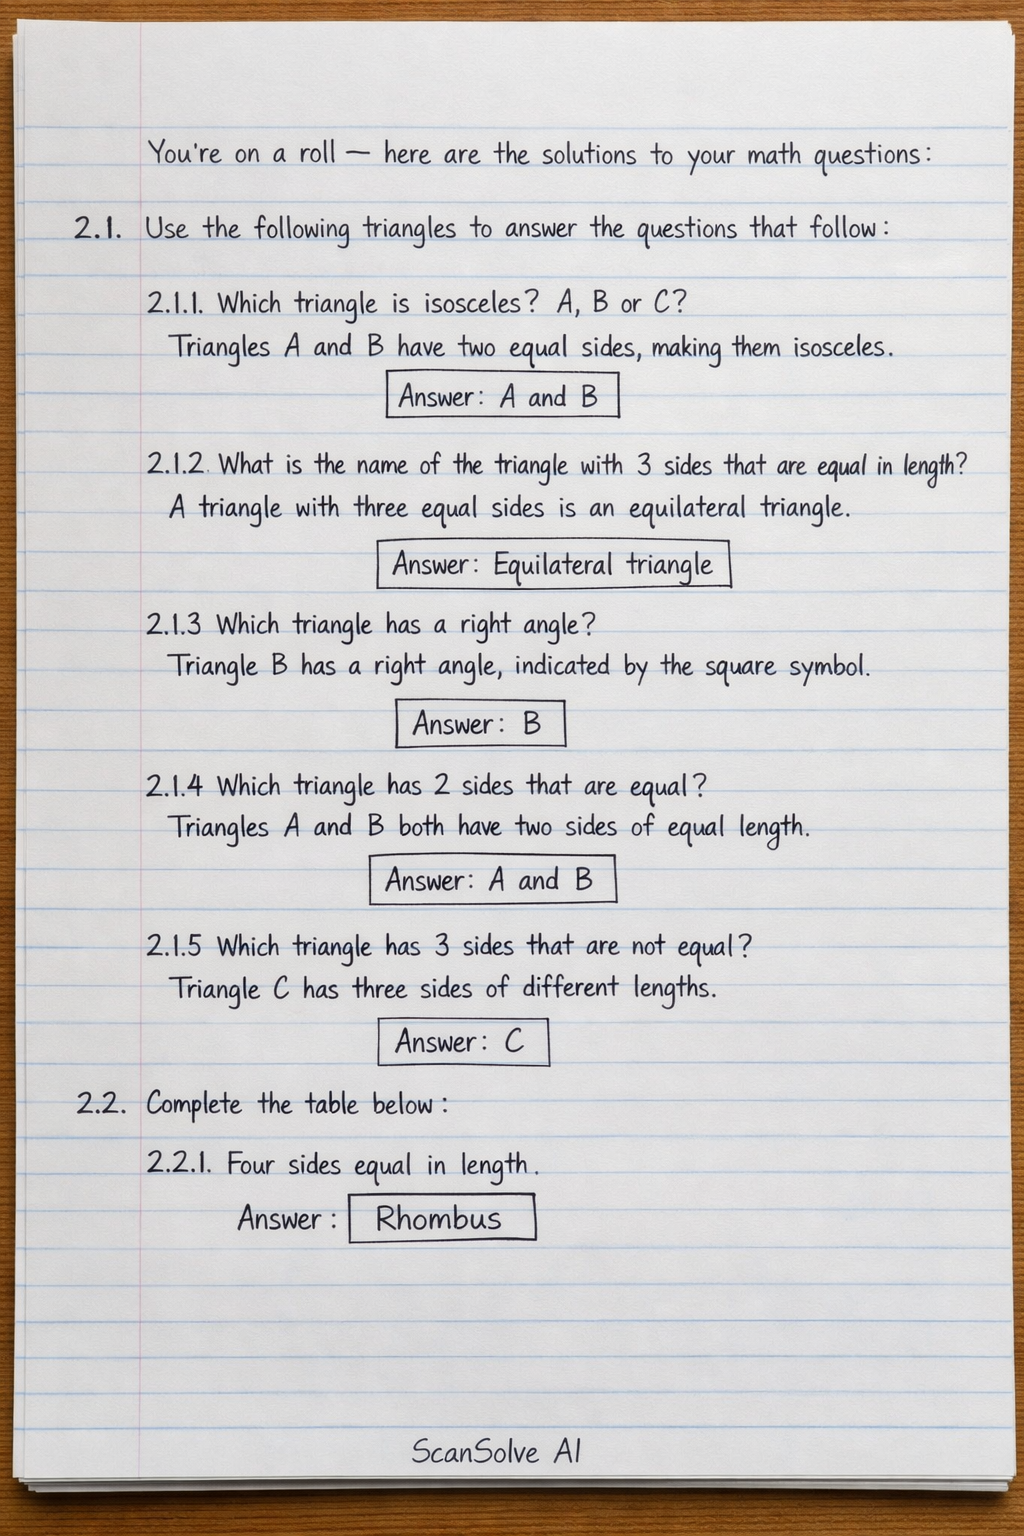 You're on a roll — here are the solutions to your math questions:
2.1. Use the following triangles to answer the questions that follow:
2.1.1. Which triangle is isosceles? A, B or C?
Triangles A and B have two equal sides, making them isosceles.
Answer: A and B
2.1.2. What is the name of the triangle with 3 sides that are equal in length?
A triangle with three equal sides is an equilateral triangle.
Answer: Equilateral triangle
2.1.3 Which triangle has a right angle?
Triangle B has a right angle, indicated by the square symbol.
Answer: B
2.1.4 Which triangle has 2 sides that are equal?
Triangles A and B both have two sides of equal length.
Answer: A and B
2.1.5 Which triangle has 3 sides that are not equal?
Triangle C has three sides of different lengths.
Answer: C
2.2. Complete the table below:
2.2.1. Four sides equal in length.
Answer: Rhombus
ScanSolve AI